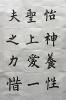 怡神養性
聖上愛一
夫之力惜